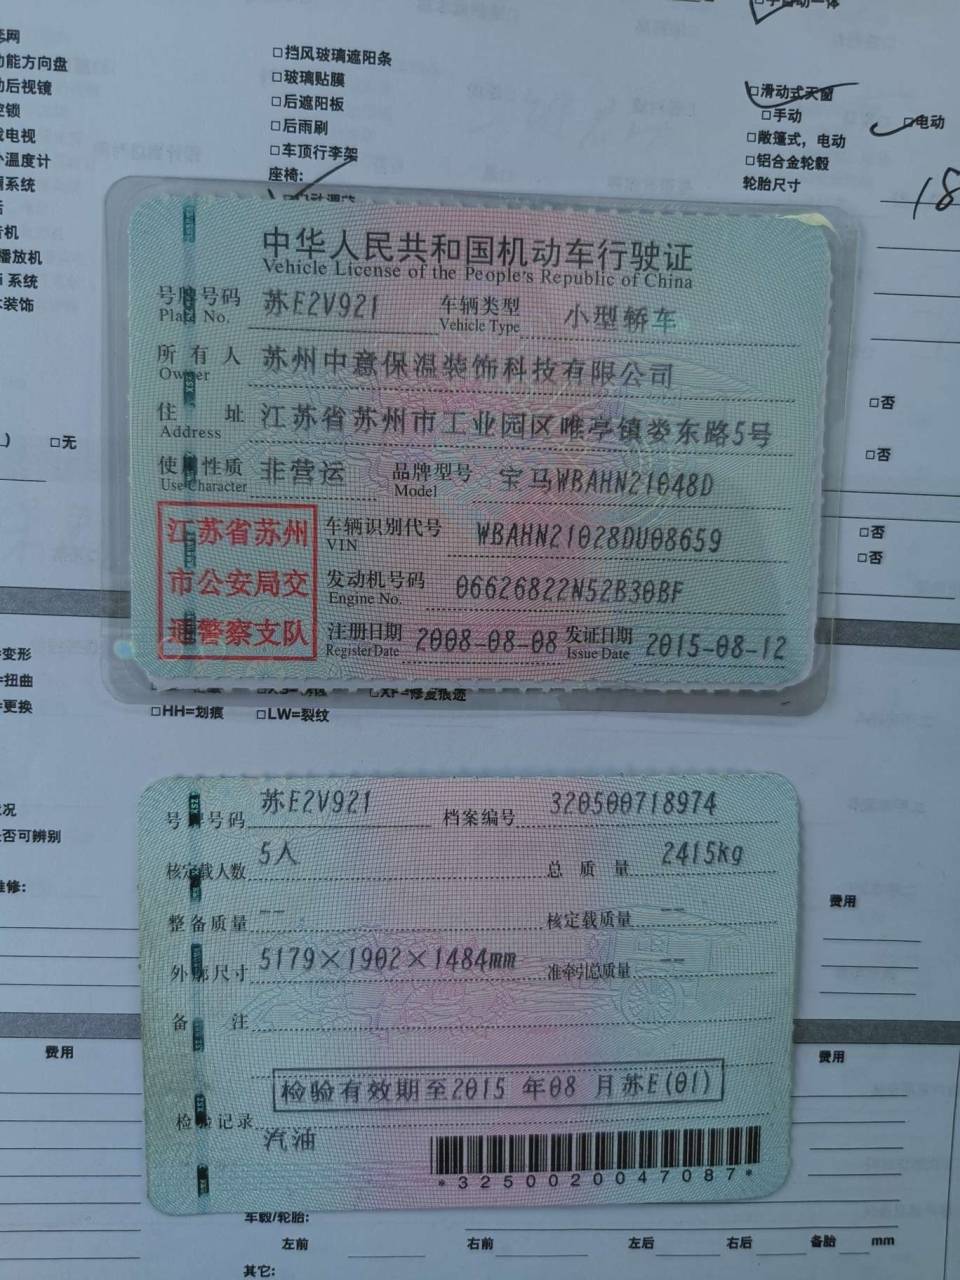 手自动一体
能方向盘
后视镜
电视
温度计
系统
播放机
系统
装饰
□挡风玻璃遮阳条
□玻璃贴膜
□后遮阳板
□后雨刷
□车顶行李架
座椅:
□滑动式天窗
□手动
□电动
□敞篷式，电动
□铝合金轮毂
轮胎尺寸
18
中华人民共和国机动车行驶证
Vehicle License of the People's Republic of China
号牌号码 苏E2V921 车辆类型 小型轿车
Plate No. Vehicle Type
所有人 苏州中意保温装饰科技有限公司
Owner
住址 江苏省苏州市工业园区唯亭镇娄东路5号
Address
使用性质 非营运 品牌型号 宝马WBAHN21048D
Use Character Model
江苏省苏州
市公安局交
通警察支队
车辆识别代号 WBAHN21028DU08659
VIN
发动机号码 06626822N52B30BF
Engine No.
注册日期 2008-08-08 发证日期 2015-08-12
Register Date Issue Date
□无
□否
□否
□否
□否
=变形
=扭曲
=更换
XF=修复痕迹
□HH=划痕 □LW=裂纹
号牌号码 苏E2V921 档案编号 320500718974
核定载人数 5人 总质量 2415kg
整备质量 -- 核定载质量 --
外廓尺寸 5179×1902×1484mm 准牵引总质量 --
备注
检验有效期至2015 年08 月苏E(01)
检验记录
汽油
*3250020047087*
否可辨别
维修:
费用
费用
费用
车毂/轮胎:
左前 右前 左后 右后 备胎 mm
其它: